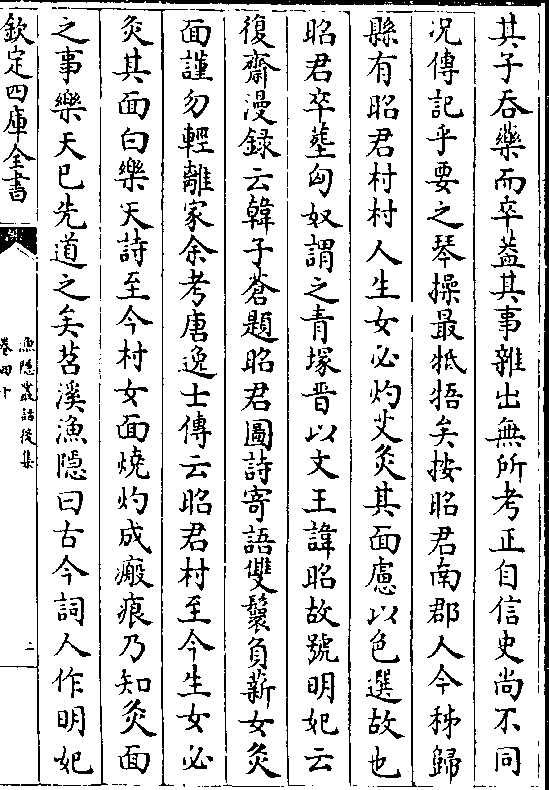 其子吞藥而卒葢其事雜出無所考正自信史尚不同
况傳記乎要之琴操最牴牾矣按昭君南郡人今秭歸
縣有昭君村村人生女必灼艾灸其面慮以色選故也
昭君卒塟匈奴謂之青塚晉以文王諱昭故號明妃云
復齋漫録云韓子蒼題昭君圖詩寄語雙鬟負薪女灸
面謹勿輕離家余考唐逸士傳云昭君村至今生女必
灸其面白樂天詩至今村女面燒灼成瘢痕乃知灸面
之事樂天已先道之矣苕溪漁隱曰古今詞人作明妃
欽定四庫全書
漁隱叢話後集
卷四十
二